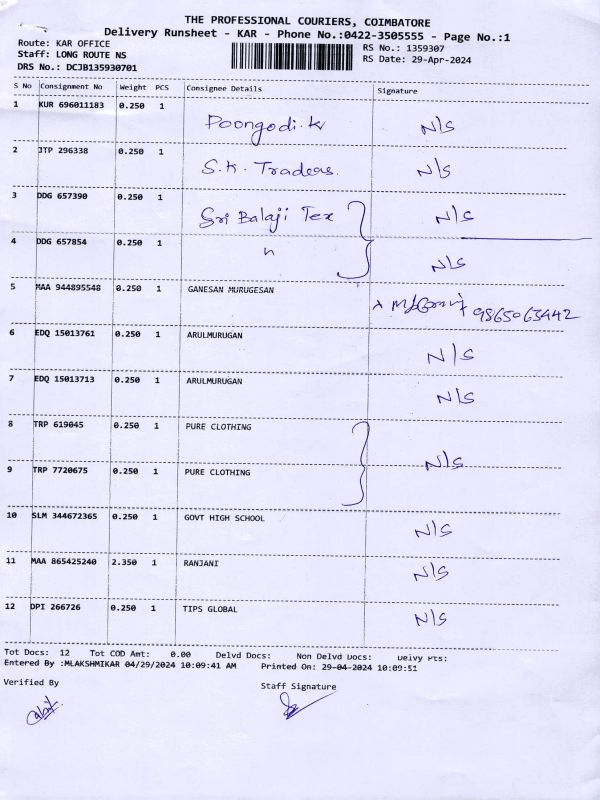 THE PROFESSIONAL COURIERS, COIMBATORE
Delivery Runsheet - KAR - Phone No.:0422-3505555 - Page No.:1
Route: KAR OFFICE
RS No.: 1359307
Staff: LONG ROUTE NS
RS Date: 29-Apr-2024
DRS No.: DCJB135930701
S No Consignment No Weight PCS Consignee Details Signature
1 KUR 696011183 0.250 1
Poongodi. K N/S
2 JTP 296338 0.250 1
S.K. Tradeas. N/S
3 DDG 657390 0.250 1
Sri Balaji Tex N/S
4 DDG 657854 0.250 1
" N/S
5 MAA 944895548 0.250 1 GANESAN MURUGESAN
9865063442
6 EDQ 15013761 0.250 1 ARULMURUGAN
N/S
7 EDQ 15013713 0.250 1 ARULMURUGAN
N/S
8 TRP 619045 0.250 1 PURE CLOTHING
N/S
9 TRP 7720675 0.250 1 PURE CLOTHING
10 SLM 344672365 0.250 1 GOVT HIGH SCHOOL
N/S
11 MAA 865425240 2.350 1 RANJANI
N/S
12 DPI 266726 0.250 1 TIPS GLOBAL
N/S
Tot Docs: 12 Tot COD Amt: 0.00 Delvd Docs: Non Delvd Docs: Delvy Pts:
Entered By :MLAKSHMIKAR 04/29/2024 10:09:41 AM Printed On: 29-04-2024 10:09:51
Verified By
Staff Signature